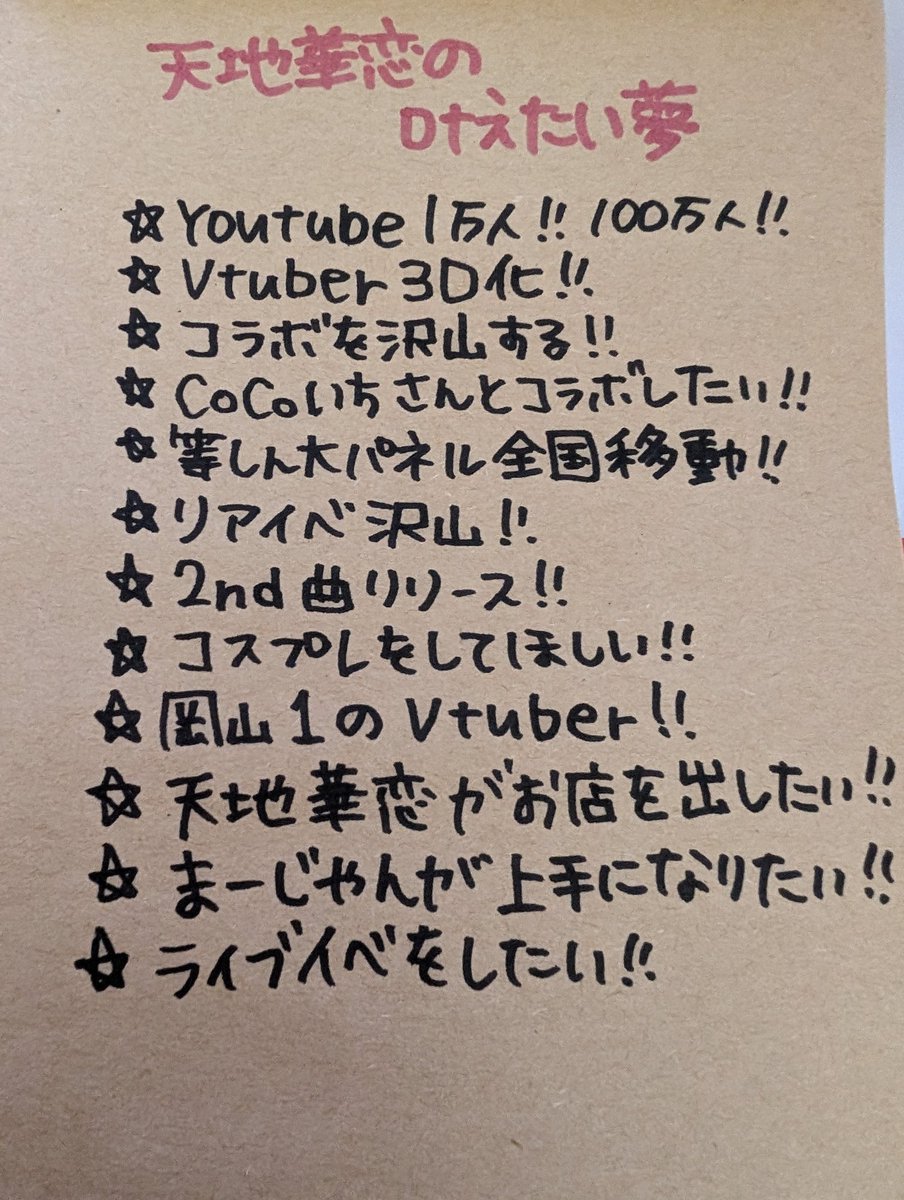 天地華恋の
叶えたい夢
☆Youtube 1万人!! 100万人!!
☆Vtuber 3D化!!
☆コラボを沢山する!!
☆CoCoいちさんとコラボしたい!!
☆等しん大パネル全国移動!!
☆リアイベ沢山!!
☆2nd曲リリース!!
☆コスプレをしてほしい!!
☆岡山1のVtuber!!
☆天地華恋がお店を出したい!!
☆まーじゃんが上手になりたい!!
☆ライブイベをしたい!!